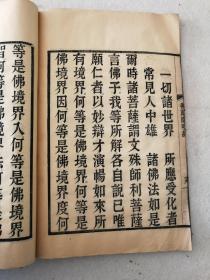 一切諸世界　所應受化者
常見人中雄　諸佛法如是
爾時諸菩薩謂文殊師利菩薩
言佛子我等所解各自說已唯
願仁者以妙辯才演暢如來所
有境界何等是佛境界何等是
佛境界因何等是佛境界度何
等是佛境界入何等是佛境界
智何等是佛境界法何等是佛